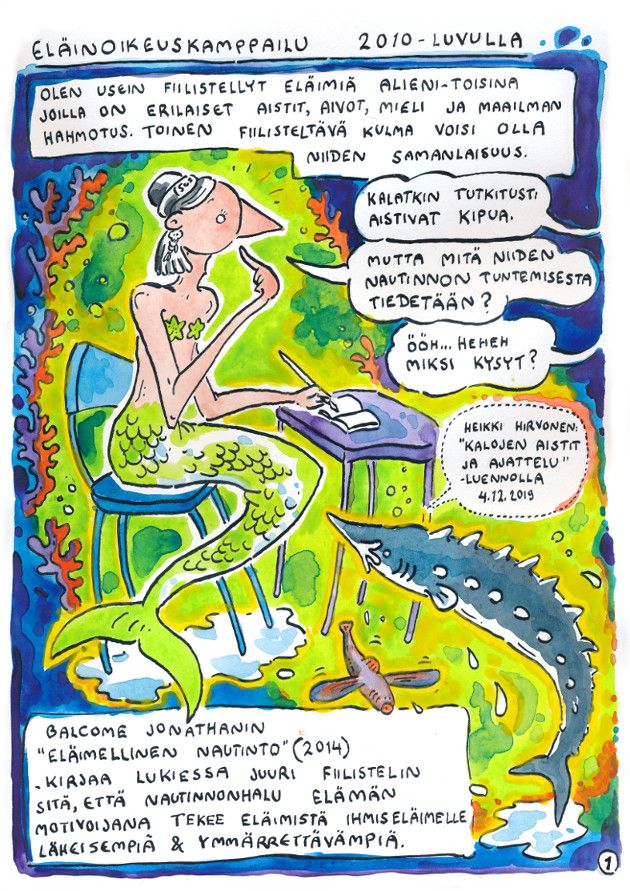 ELÄINOIKEUSKAMPPAILU 2010-LUVULLA
OLEN USEIN FIILISTELLYT ELÄIMIÄ ALIENI-TOISINA
JOILLA ON ERILAISET AISTIT, AIVOT, MIELI JA MAAILMAN
HAHMOTUS. TOINEN FIILISTELTÄVÄ KULMA VOISI OLLA
NIIDEN SAMANLAISUUS.
KALATKIN TUTKITUSTI
AISTIVAT KIPUA.
MUTTA MITÄ NIIDEN
NAUTINNON TUNTEMISESTA
TIEDETÄÄN?
ÖÖH... HEHEH
MIKSI KYSYT?
HEIKKI HIRVONEN:
"KALOJEN AISTIT
JA AJATTELU"
-LUENNOLLA
4.12.2019
BALCOME JONATHANIN
"ELÄIMELLINEN NAUTINTO" (2014)
-KIRJAA LUKIESSA JUURI FIILISTELIN
SITÄ, ETTÄ NAUTINNONHALU ELÄMÄN
MOTIVOIJANA TEKEE ELÄIMISTÄ IHMISELÄIMELLE
LÄHEISEMPIÄ & YMMÄRRETTÄVÄMPIÄ.
1